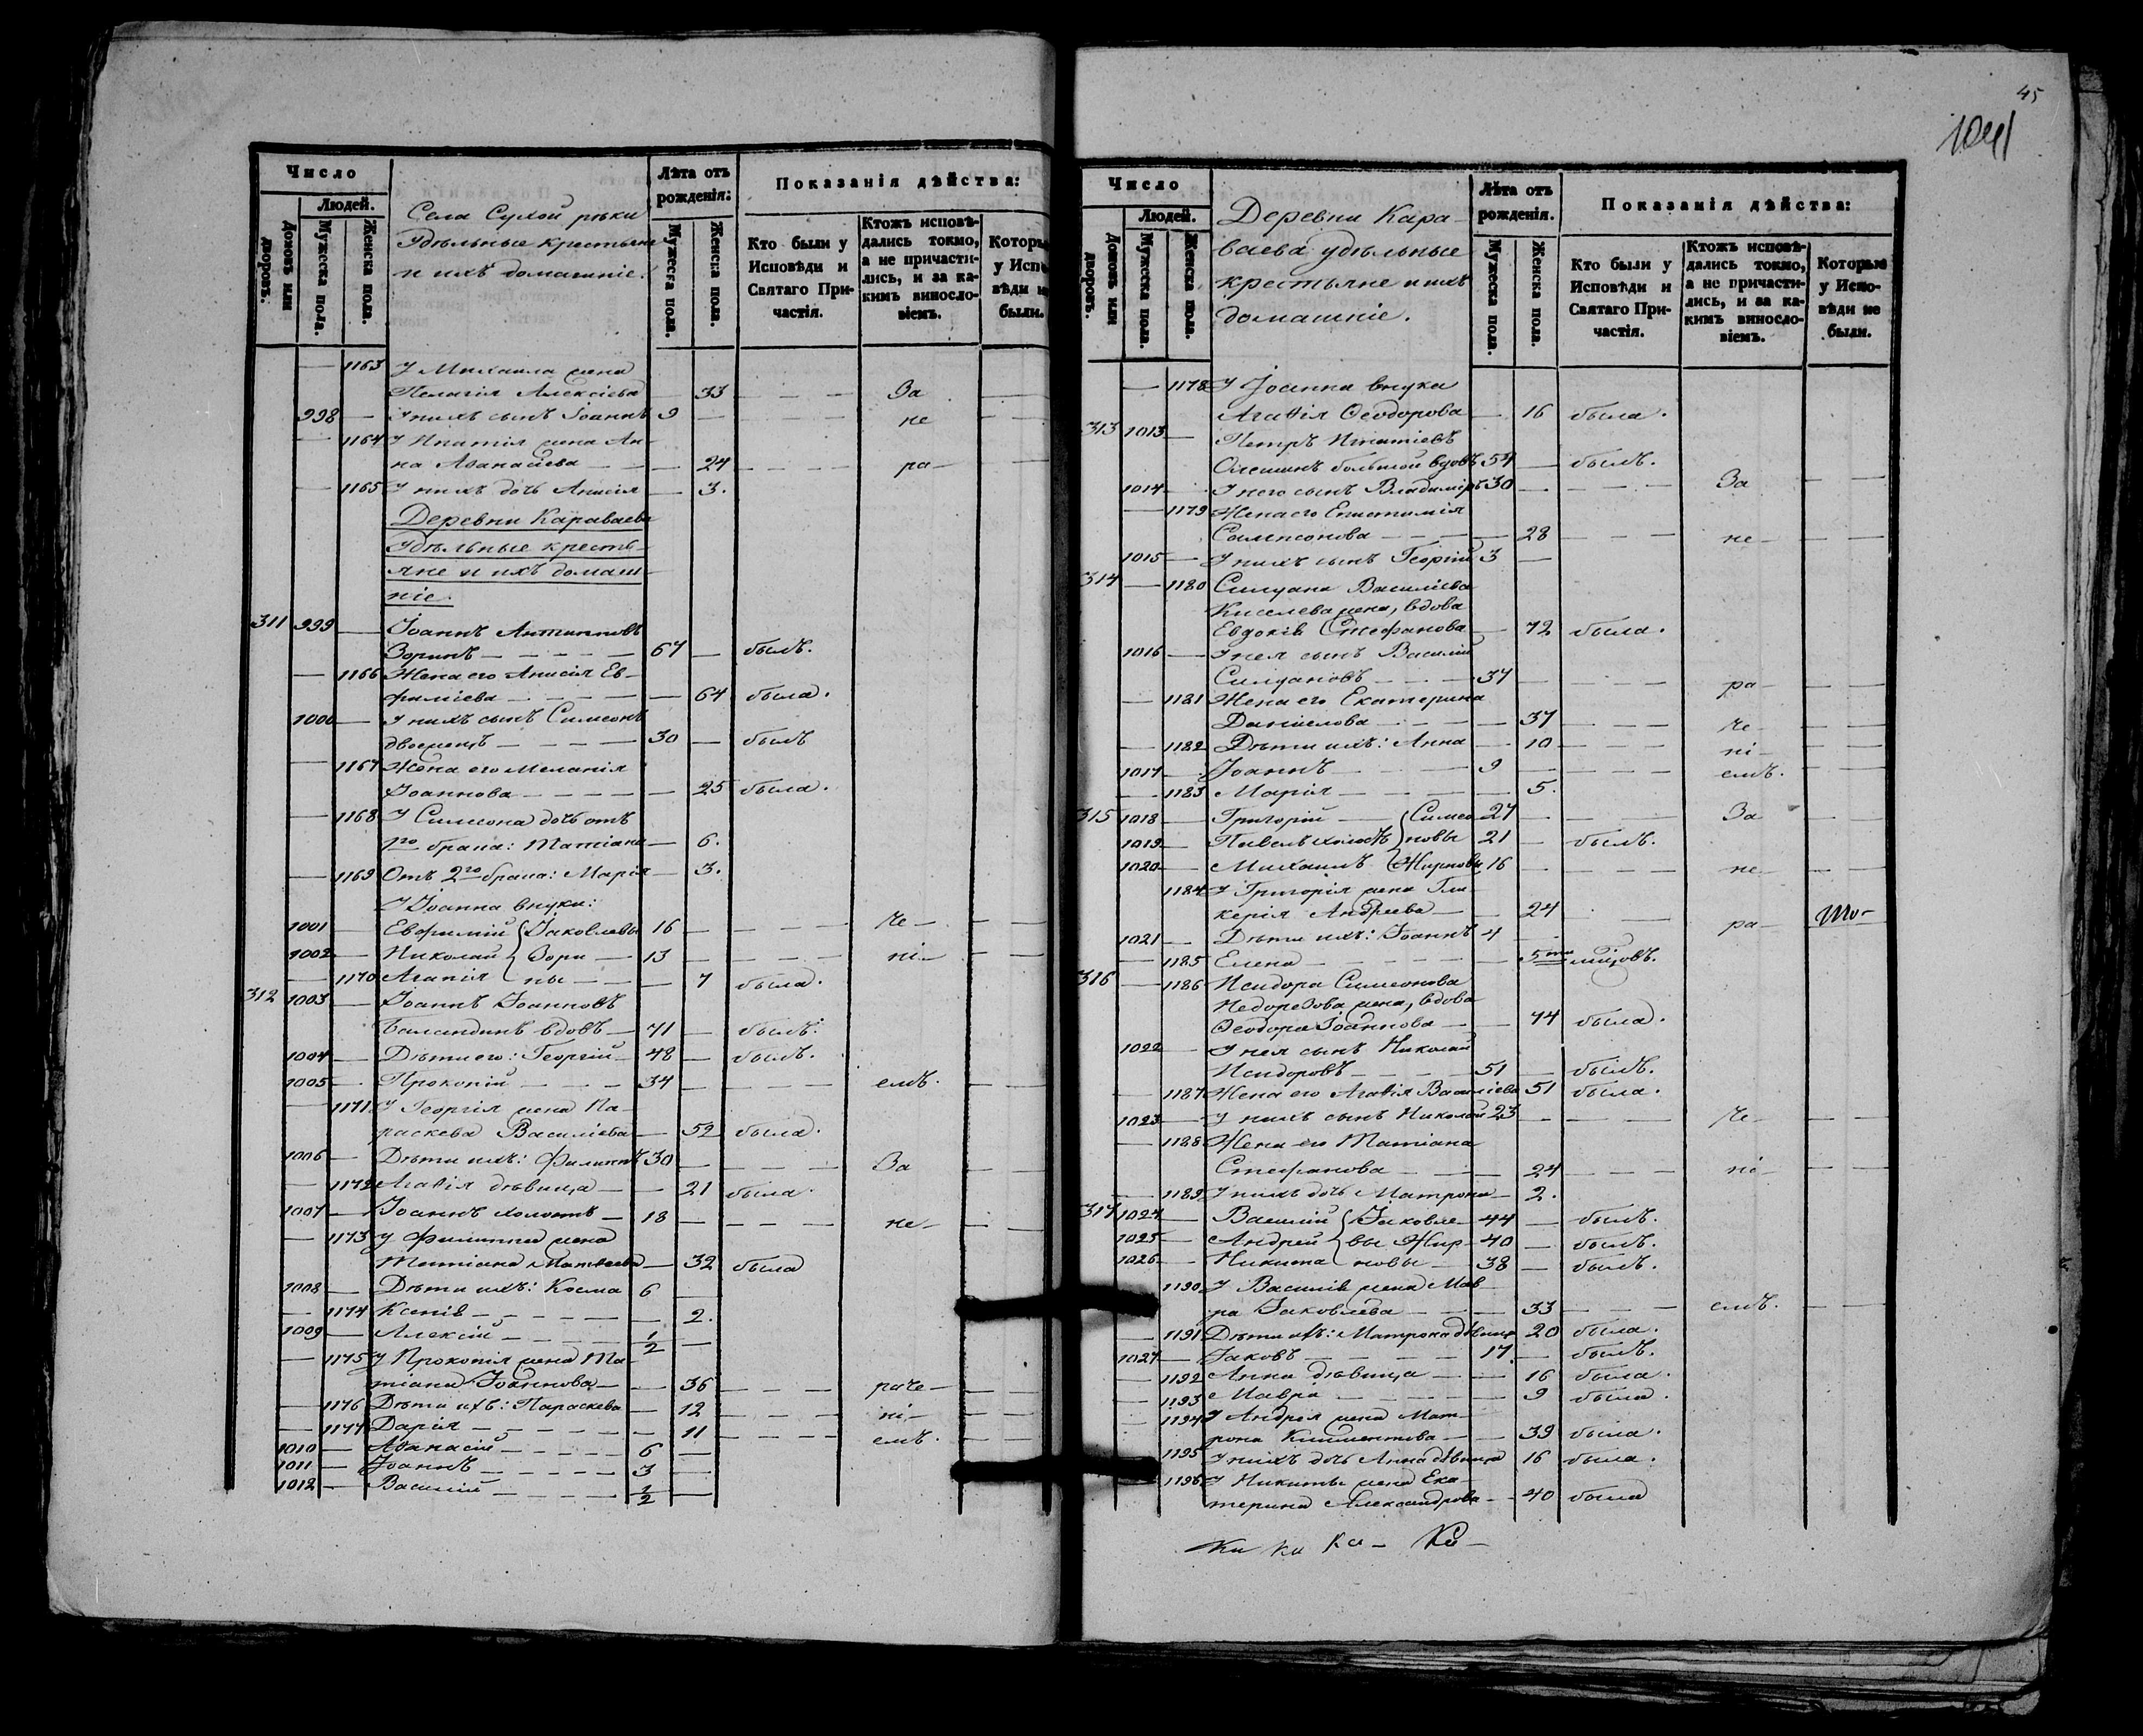 45
1041
Число
Людей.
Домовъ или дворовъ.
Мужеска пола.
Женска пола.
Села Сухой рѣки
Удѣльные крестьяне
и ихъ домашніе.
Лѣта отъ рожденія:
Мужеска пола.
Женска пола.
Показанія дѣйства:
Кто были у Исповѣди и Святаго Причастія.
Ктожъ исповѣдались токмо, а не причастились, и за какимъ винословіемъ.
Которы у Исповѣди н были.
1163 У Михаила жена
Пелагія Алексіева 33 За
998 У нихъ сынъ Іоаннъ 9 не
1164 У Ипатія жена Ан-
на Аѳанасіева 24 ра-
1165 У нихъ дочь Анисія 3.
Деревни Караваева
Удѣльные кресть-
яне и ихъ домаш-
ніе.
311 999 Іоаннъ Антиповъ
Зоринъ 67 былъ.
1166 Жена его Анисія Ев-
фиміева 64 была.
1000 У нихъ сынъ Симеонъ
двоеженецъ 30 былъ
1167 Жена его Меланія
Іоаннова 25 была.
1168 У Симеона дочь отъ
1го брака: Татіана 6.
1169 Отъ 2го брака: Марія 3.
У Іоанна внуки:
1001 Евфимій Іаковлевы 16 че-
1002 Николай Зори 13 ні-
1170 Агапія ны 7 была.
312 1003 Іоаннъ Іоанновъ
Баландинъ вдовъ 71 былъ.
1004 Дѣти его: Георгій 48 былъ.
1005 Прокопій 34 емъ.
1171 У Георгія жена Па-
раскева Василіева 52 была.
1006 Дѣти ихъ: Филиппъ 30 За
1172 Агаѳія дѣвица 21 была.
1007 Іоаннъ холостъ 18 не-
1173 У Филиппа жена
Татіана Матвѣева 32 была
1008 Дѣти ихъ: Косма 6
1174 Ксенія 2.
1009 Алексій 1/2
1175 У Прокопія жена Та-
тіана Іоаннова 36 раче-
1176 Дѣти ихъ: Параскева 12 ні-
1177 Дарія 11 емъ.
1010 Аѳанасій 6
1011 Іоаннъ 3
1012 Василій 1/2
Число
Людей.
Домовъ или дворовъ.
Мужеска пола.
Женска пола.
Деревни Кара-
ваева удѣльные
крестьяне и ихъ
домашніе.
Лѣта отъ рожденія.
Мужеска пола.
Женска пола.
Показанія дѣйства:
Кто были у Исповѣди и Святаго Причастія.
Ктожъ исповѣдались токмо, а не причастились, и за какимъ винословіемъ.
Которые у Исповѣди не были.
1178 У Іоанна внука
Агаѳія Ѳеодорова 16 была.
313 1013 Петръ Игнатіевъ
большой вдовъ 54 былъ.
1014 У него сынъ Владиміръ 30 За
1179 Жена его Епистимія
Сампсонова 28 не-
1015 У нихъ сынъ Георгій 3
314 1180 Силуана Василіева
Киселева жена, вдова
Евдокія Стефанова 72 была.
1016 У нея сынъ Василій
Силуановъ 37 ра-
1181 Жена его Екатерина
Даніилова 37 че-
1182 Дѣти ихъ: Анна 10 ні-
1017 Іоаннъ 9 емъ.
1183 Марія 5.
315 1018 Григорій Симео 27 За
1019 Павелъ холостъ новы 21 былъ.
1020 Михаилъ Жирновы 16 не-
1184 У Григорія жена Гли-
керія Андреева 24 ра-
1021 Дѣти ихъ: Іоаннъ 4
1185 Елена 5ти мѣсяцовъ.
316 1186 Исидора Симеонова
Недорезова жена, вдова
Ѳеодора Іоаннова 74 была.
1022 У нея сынъ Николай
Исидоровъ 51 былъ.
1187 Жена его Агаѳія Василіева 51 была.
1023 У нихъ сынъ Николай 23 че-
1188 Жена его Татіана
Стефанова 24 ні-
1189 У нихъ дочь Матрона 2.
317 1024 Василій Іаковле 44 былъ.
1025 Андрей вы Жир 40 былъ.
1026 Никита новы 38 былъ.
1190 У Василія жена Мав-
ра Іаковлева 33 емъ.
1191 Дѣти ихъ: Матрона дѣвица 20 была.
1027 Іаковъ 17 былъ.
1192 Анна дѣвица 16 была.
1193 Мавра 9 была.
1194 У Андрея жена Мат-
рона Климентова 39 была.
1195 У нихъ дочь Анна дѣвица 16 была.
1196 У Никиты жена Ека-
терина Александрова 40 была